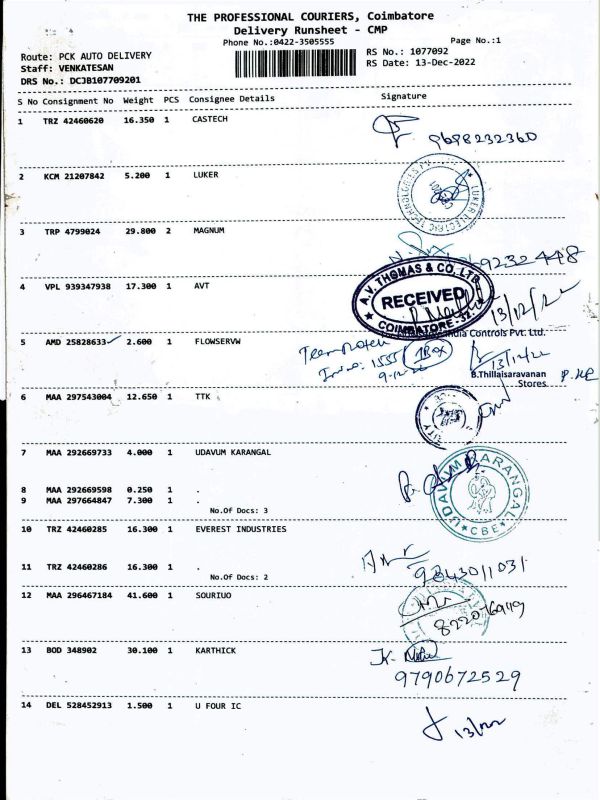 THE PROFESSIONAL COURIERS, Coimbatore
Delivery Runsheet - CMP
Phone No.:0422-3505555 Page No.:1
Route: PCK AUTO DELIVERY RS No.: 1077092
Staff: VENKATESAN RS Date: 13-Dec-2022
DRS No.: DCJB107709201
S No Consignment No Weight PCS Consignee Details Signature
1 TRZ 42460620 16.350 1 CASTECH
9698232360
2 KCM 21207842 5.200 1 LUKER
LUKER ELECTRIC TECHNOLOGIES
3 TRP 4799024 29.800 2 MAGNUM
9232448
4 VPL 939347938 17.300 1 AVT
A.V. THOMAS & CO. LTD.
RECEIVED
COIMBATORE-32.
13/12/22
Controls Pvt. Ltd.
5 AMD 25828633 2.600 1 FLOWSERVW
1 Box
13/12/22
B.Thillaisaravanan
Stores
6 MAA 297543004 12.650 1 TTK
7 MAA 292669733 4.000 1 UDAVUM KARANGAL
UDAVUM KARANGAL
CBE
8 MAA 292669598 0.250 1 .
9 MAA 297664847 7.300 1 .
No.Of Docs: 3
10 TRZ 42460285 16.300 1 EVEREST INDUSTRIES
11 TRZ 42460286 16.300 1 .
9843011031
No.Of Docs: 2
12 MAA 296467184 41.600 1 SOURIUO
13 BOD 348902 30.100 1 KARTHICK
9790672529
14 DEL 528452913 1.500 1 U FOUR IC